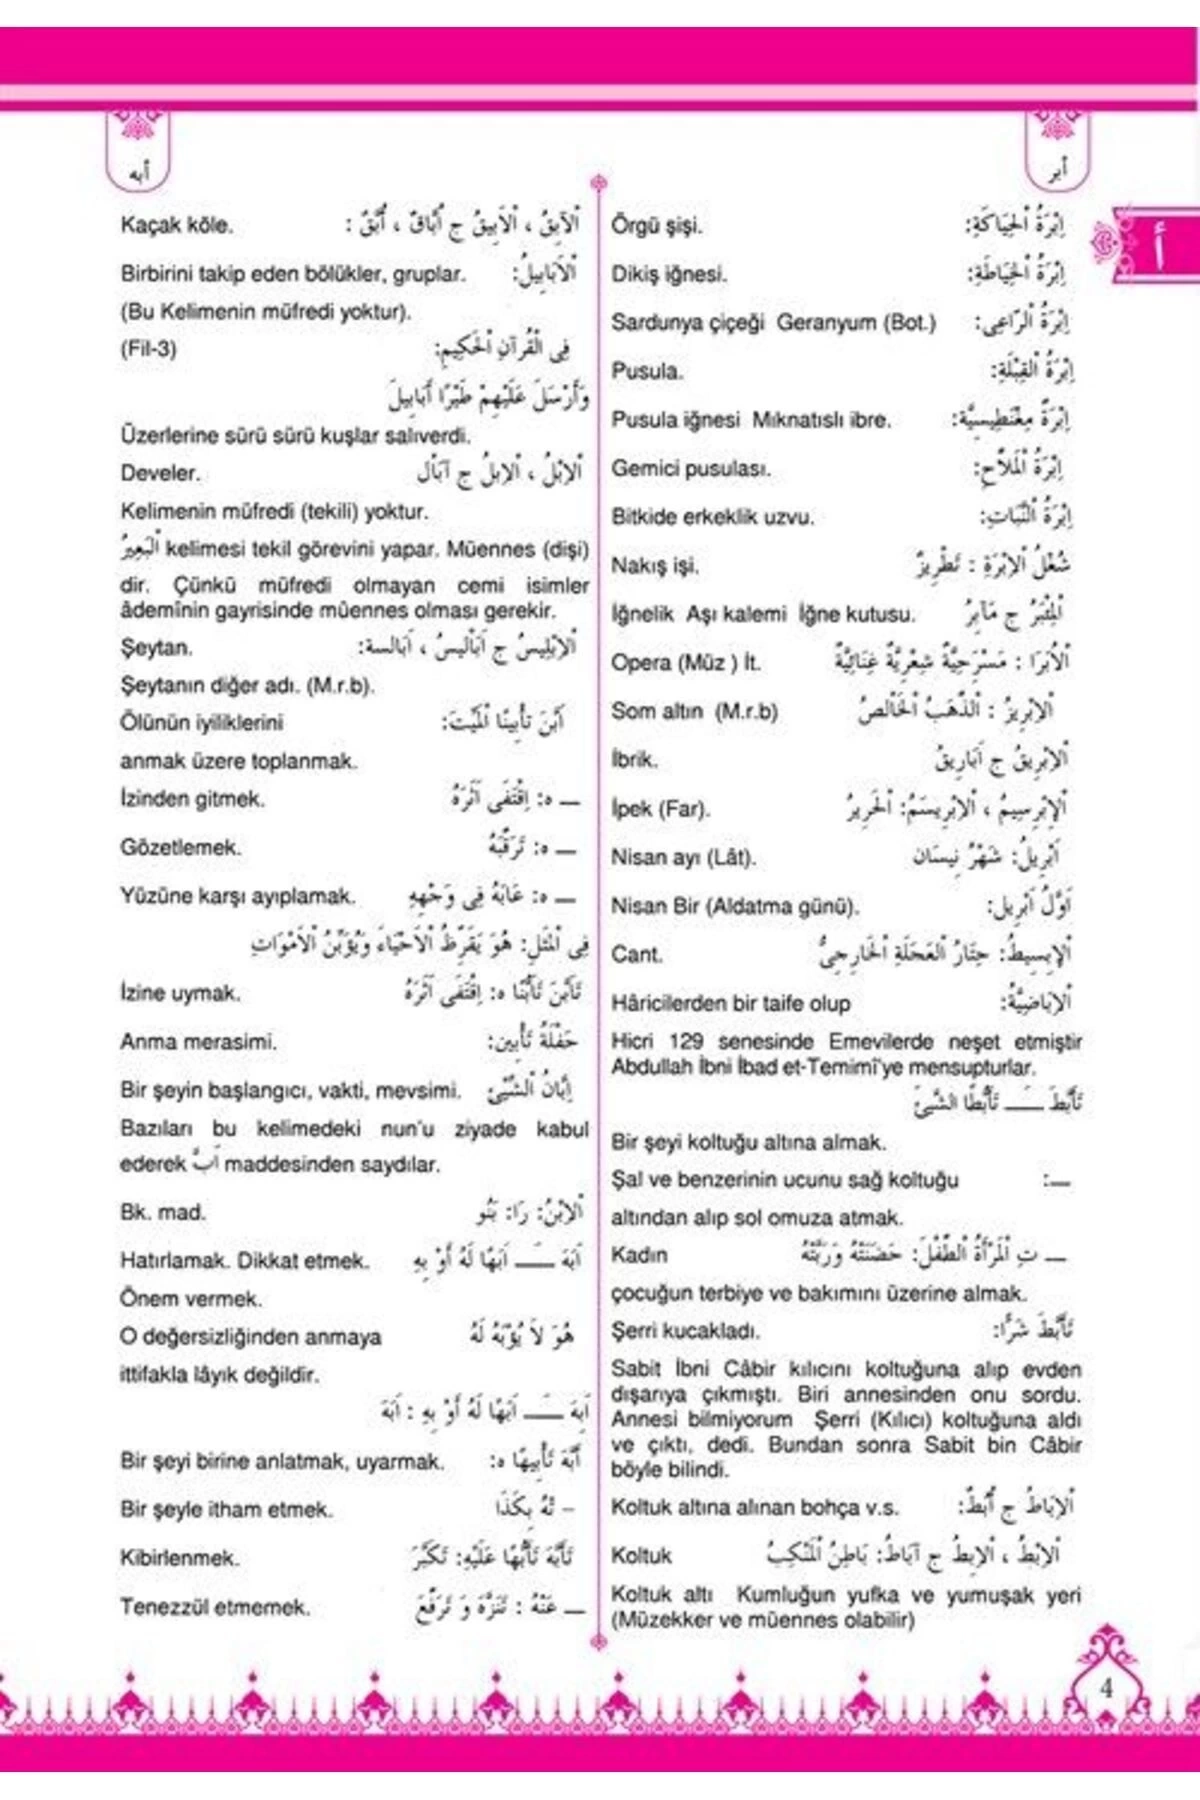 أبر
أبه
أ
إِبْرَةُ الْحِيَاكَةِ: Örgü şişi.
إِبْرَةُ الْخِيَاطَةِ: Dikiş iğnesi.
إِبْرَةُ الرَّاعِى: Sardunya çiçeği Geranyum (Bot.)
إِبْرَةُ الْقِبْلَةِ: Pusula.
إِبْرَةٌ مِغْنَطِيسِيَّة: Pusula iğnesi Mıknatıslı ibre.
إِبْرَةُ الْمَلاَّحِ: Gemici pusulası.
إِبْرَةُ النَّبَاتِ: Bitkide erkeklik uzvu.
شُغْلُ الْإِبْرَةِ : تَطْرِيزٌ Nakış işi.
الْمِئْبَرُ ج مَآبِرُ İğnelik Aşı kalemi İğne kutusu.
الْأُبَرَا : مَسْرَحِيَّةٌ شِعْرِيَّةٌ غِنَائِيَّةٌ Opera (Müz ) İt.
الْإِبْرِيزُ : الذَّهَبُ الْخَالِصُ Som altın (M.r.b)
الْإِبْرِيقُ ج أَبَارِيقُ İbrik.
الْإِبْرِسِيمُ ، الْإِبْرِيسَمُ: الْحَرِيرُ İpek (Far).
أَبْرِيلُ: شَهْرُ نِيسَان Nisan ayı (Lât).
أَوَّلُ أَبْرِيل: Nisan Bir (Aldatma günü).
الْإِبْسِيطُ: حِتَارُ الْعَجَلَةِ الْخَارِجِىُّ Cant.
الْإِبَاضِيَّةُ: Hâricilerden bir taife olup
Hicri 129 senesinde Emevilerde neşet etmiştir
Abdullah İbni İbad et-Temimî'ye mensupturlar.
تَأَبَّطَ ــــَــ تَأَبُّطًا الشَّىْءَ
Bir şeyi koltuğu altına almak.
ــ: Şal ve benzerinin ucunu sağ koltuğu
altından alıp sol omuza atmak.
ــ تِ الْمَرْأَةُ الطِّفْلَ: حَضَنَتْهُ وَرَبَّتْهُ Kadın
çocuğun terbiye ve bakımını üzerine almak.
تَأَبَّطَ شَرًّا: Şerri kucakladı.
Sabit İbni Câbir kılıcını koltuğuna alıp evden
dışarıya çıkmıştı. Biri annesinden onu sordu.
Annesi bilmiyorum Şerri (Kılıcı) koltuğuna aldı
ve çıktı, dedi. Bundan sonra Sabit bin Câbir
böyle bilindi.
الْإِبَاطُ ج أُبُطٌ: Koltuk altına alınan bohça v.s.
الْإِبْطُ ، الْإِبِطُ ج آبَاطٌ: بَاطِنُ الْمَنْكِبُ Koltuk
Koltuk altı Kumluğun yufka ve yumuşak yeri
(Müzekker ve müennes olabilir)
الْآبِقُ ، الْأَبِيقُ ج أُبَّاقٌ ، أُبَّقٌ : Kaçak köle.
الْأَبَابِيلُ: Birbirini takip eden bölükler, gruplar.
(Bu Kelimenin müfredi yoktur).
فِى الْقُرْآنِ الْحَكِيمِ: (Fil-3)
وَأَرْسَلَ عَلَيْهِمْ طَيْرًا أَبَابِيلَ
Üzerlerine sürü sürü kuşlar salıverdi.
الْإِبْلُ ، الْإِبِلُ ج آبَال Develer.
Kelimenin müfredi (tekili) yoktur.
الْبَعِيرُ kelimesi tekil görevini yapar. Müennes (dişi)
dir. Çünkü müfredi olmayan cemi isimler
âdemînin gayrisinde müennes olması gerekir.
الْإِبْلِيسُ ج أَبَالِيسُ ، أَبَالِسة: Şeytan.
Şeytanın diğer adı. (M.r.b).
أَبَّنَ تَأْبِينًا الْمَيِّتَ: Ölünün iyiliklerini
anmak üzere toplanmak.
ــ ه: اِقْتَفَى أَثَرَهُ İzinden gitmek.
ــ ه: تَرَقَّبَهُ Gözetlemek.
ــ ه: عَابَهُ فِى وَجْهِهِ Yüzüne karşı ayıplamak.
فِى الْمَثَلِ: هُوَ يُقَرِّظُ الْأَحْيَاءَ وَيُؤَبِّنُ الْأَمْوَاتِ
تَأَبَّنَ تَأَبُّنًا ه: اِقْتَفَى أَثَرَهُ İzine uymak.
حَفْلَةُ تَأْبِين: Anma merasimi.
إِبَّانُ الشَّيْئِ Bir şeyin başlangıcı, vakti, mevsimi.
Bazıları bu kelimedeki nun'u ziyade kabul
ederek أَبَّ maddesinden saydılar.
الْإِبْنُ: رَا: بَنُو Bk. mad.
أَبَهَ ــــَــ أَبَهًا لَهُ أَوْ بِهِ Hatırlamak. Dikkat etmek.
Önem vermek.
هُوَ لَا يُؤْبَهُ لَهُ O değersizliğinden anmaya
ittifakla lâyık değildir.
أَبِهَ ــــَــ أَبَهًا لَهُ أَوْ بِهِ : أَبَهَ
أَبَّهَ تَأْبِيهًا ه: Bir şeyi birine anlatmak, uyarmak.
– تُهُ بِكَذَا Bir şeyle itham etmek.
تَأَبَّهَ تَأَبُّهًا عَلَيْهِ: تَكَبَّرَ Kibirlenmek.
ــ عَنْهُ : تَنَزَّهَ وَ تَرَفَّعَ Tenezzül etmemek.
4